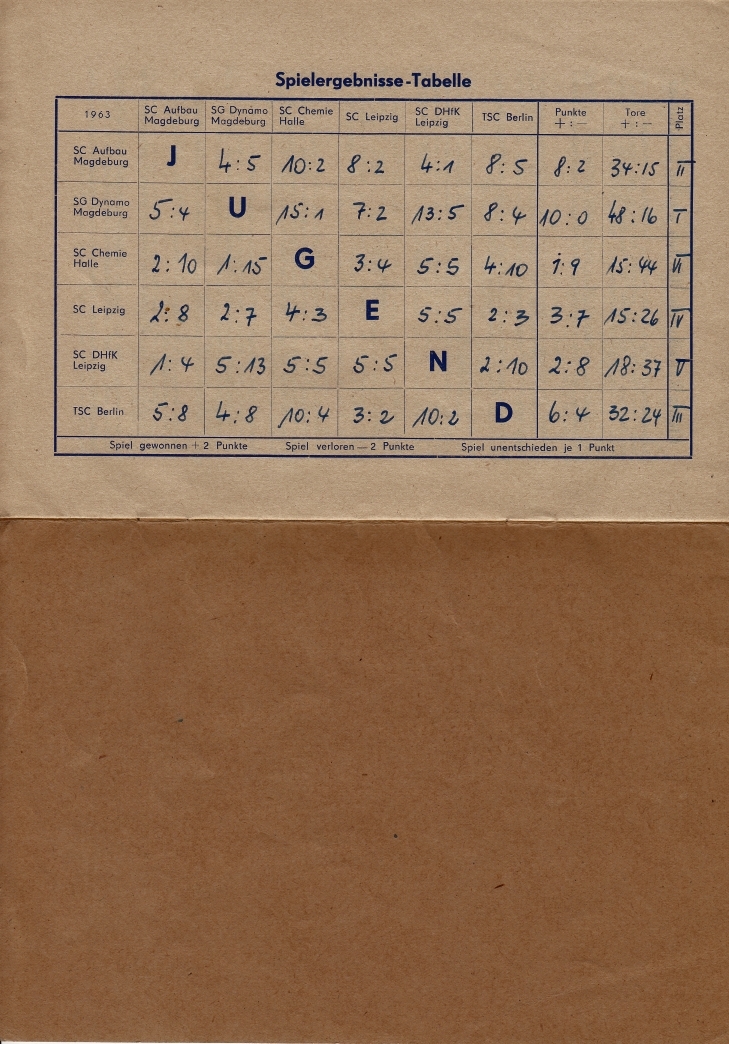 Spielergebnisse-Tabelle
1963 SC Aufbau Magdeburg SG Dynamo Magdeburg SC Chemie Halle SC Leipzig SC DHfK Leipzig TSC Berlin Punkte + : — Tore + : — Platz
SC Aufbau Magdeburg J 4:5 10:2 8:2 4:1 8:5 8:2 34:15 II
SG Dynamo Magdeburg 5:4 U 15:1 7:2 13:5 8:4 10:0 48:16 I
SC Chemie Halle 2:10 1:15 G 3:4 5:5 4:10 1:9 15:44 VI
SC Leipzig 2:8 2:7 4:3 E 5:5 2:3 3:7 15:26 IV
SC DHfK Leipzig 1:4 5:13 5:5 5:5 N 2:10 2:8 18:37 V
TSC Berlin 5:8 4:8 10:4 3:2 10:2 D 6:4 32:24 III
Spiel gewonnen + 2 Punkte Spiel verloren — 2 Punkte Spiel unentschieden je 1 Punkt